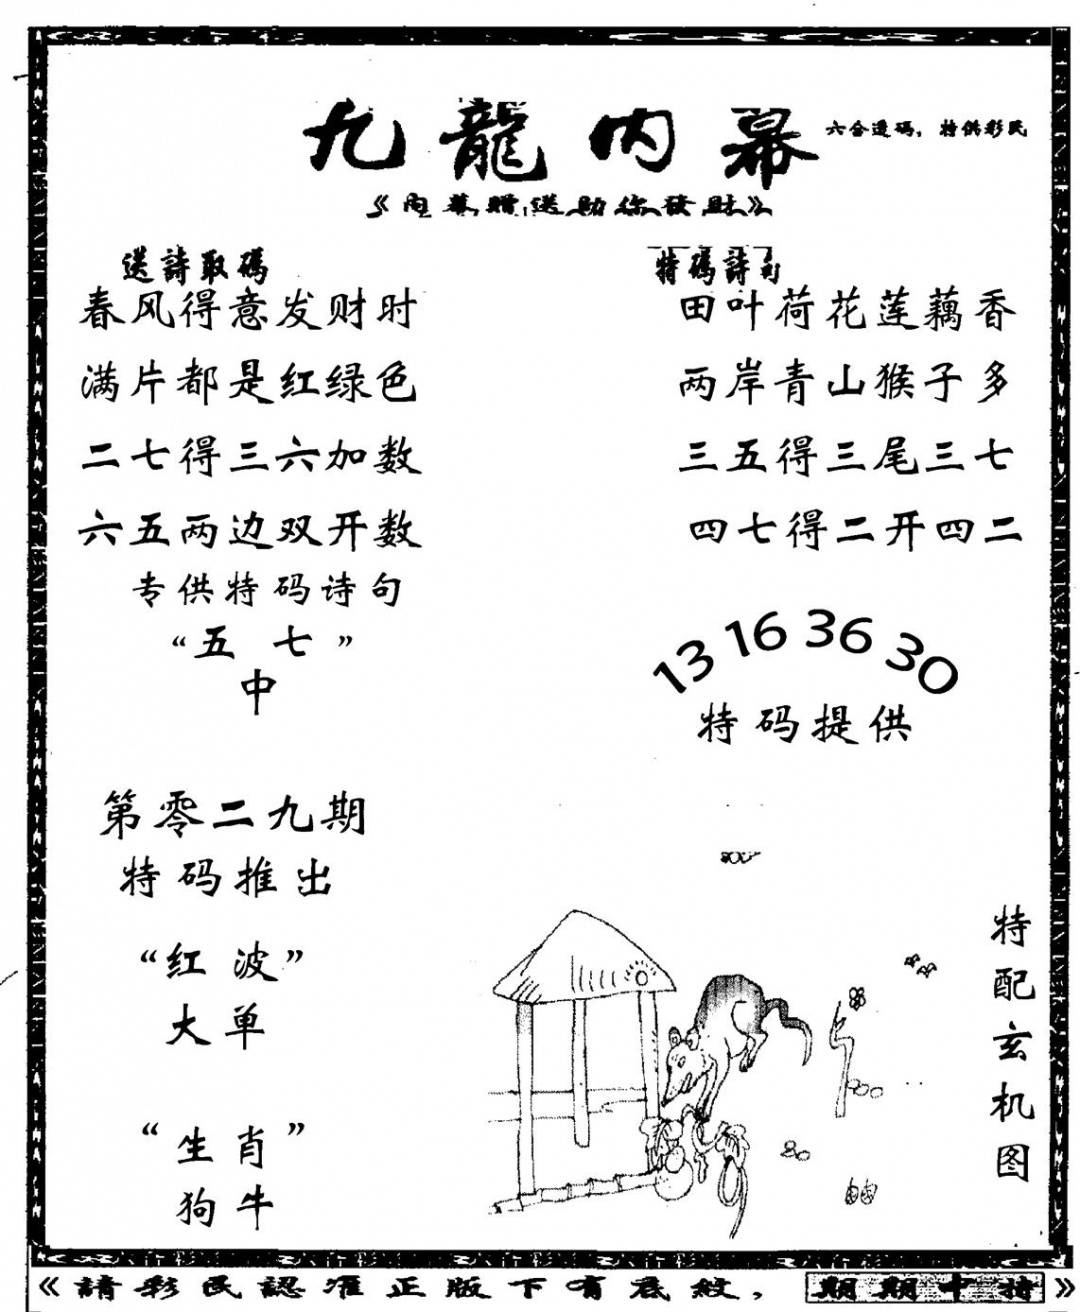 九龍内幕
六合透码，特供彩民
《内幕赠送助你發財》
送詩取碼
春风得意发财时
满片都是红绿色
二七得三六加数
六五两边双开数
专供特码诗句
“五七”
中
特碼詩句
田叶荷花莲藕香
两岸青山猴子多
三五得三尾三七
四七得二开四二
13 16 36 30
特码提供
第零二九期
特码推出
“红波”
大单
“生肖”
狗牛
特配玄机图
《請彩民認准正版下有底紋，期期中特》